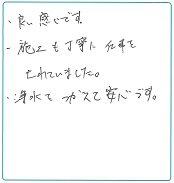 ・良い感じです。
・施工も丁寧に仕事を
されていました。
・浄水もつかえて安心です。